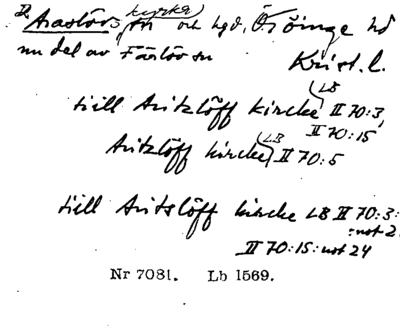 Araslövs kyrka sn och hgd, Ö. Göinge hd
nu del av Färlöv sn
Krist. l.
till Aritzlöff kircke LB II 70:3,
II 70:15
Aritzlöff kircke LB II 70:5
till Aritslöff kircke LB II 70:3:
:not 2
II 70:15:not 24
Nr 7081. Lb 1569.